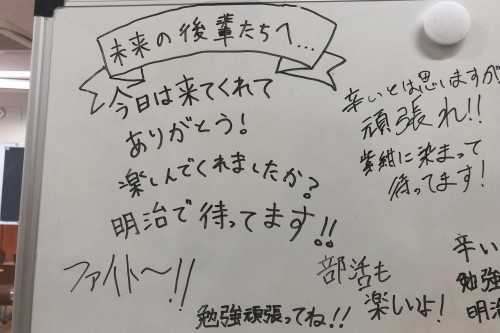 未来の後輩たちへ...
今日は来てくれて
ありがとう!
楽しんでくれましたか?
明治で待ってます!!
ファイト〜!!
勉強頑張ってね!!
部活も
楽しいよ!
辛いとは思いますが
頑張れ!!
紫紺に染まって
待ってます!
辛い
勉強
明治